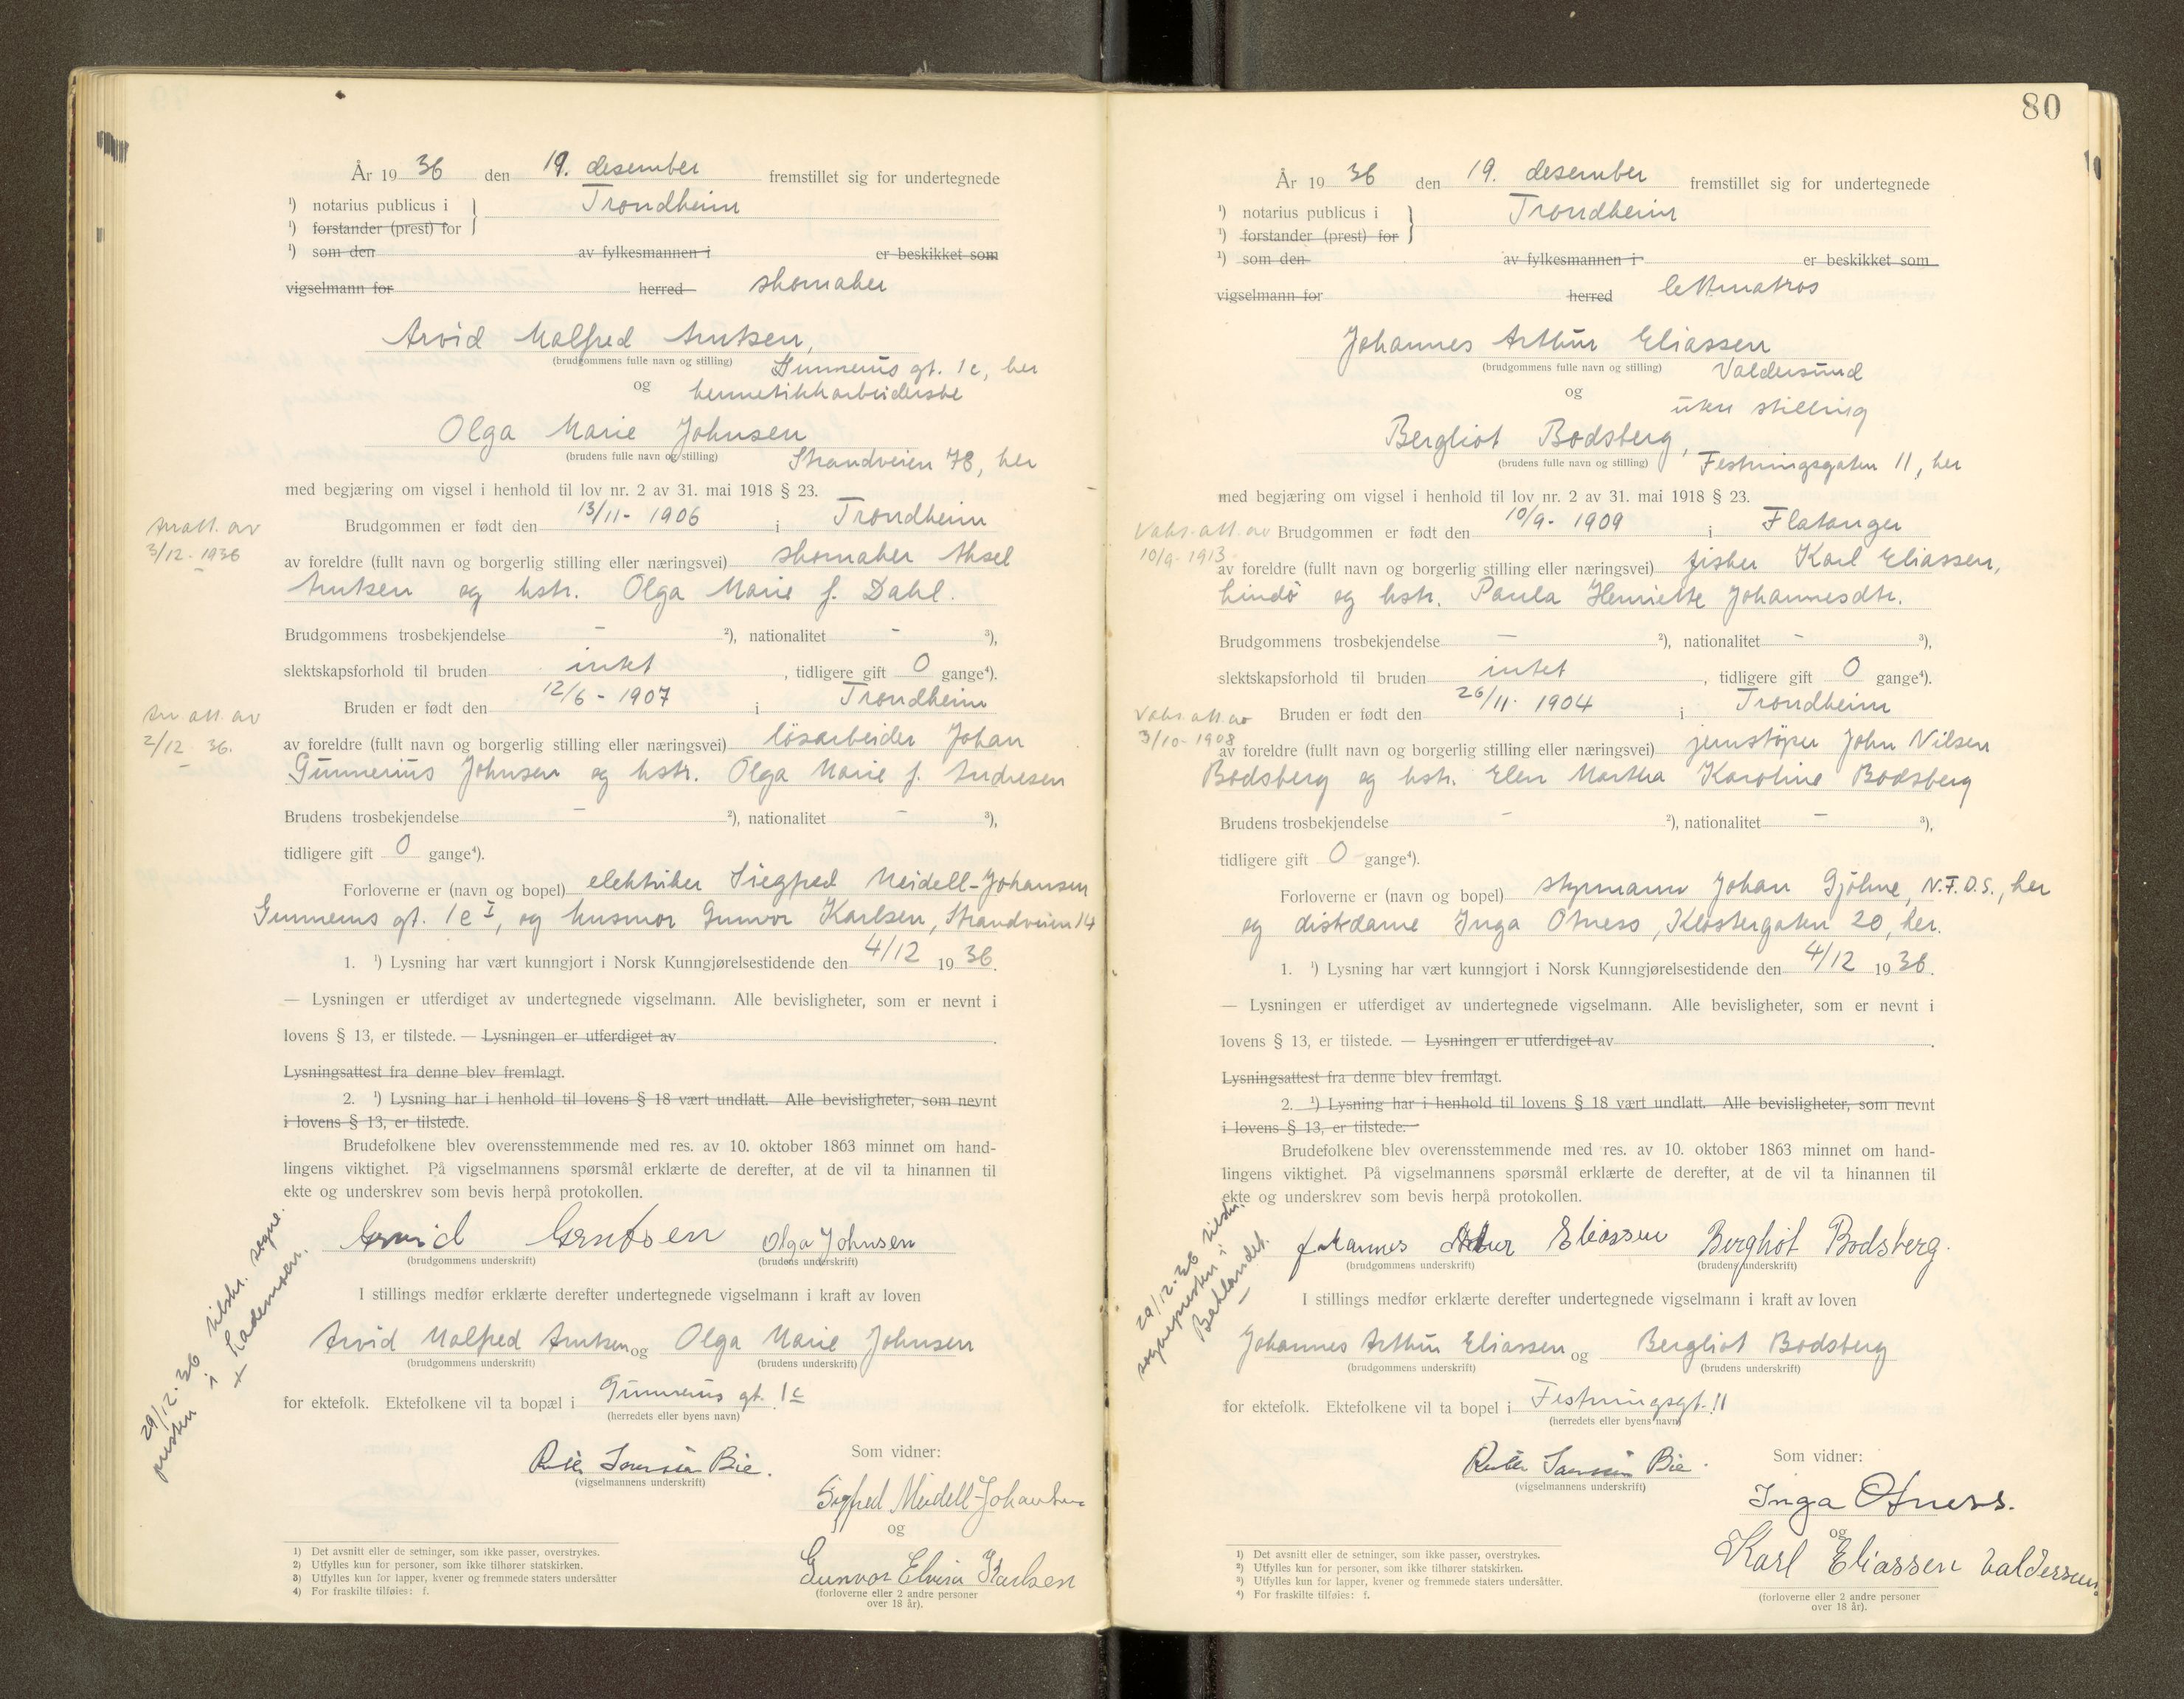 År 19 36 den 19. desember fremstillet sig for undertegnede
¹) notarius publicus i Trondheim
¹) forstander (prest) for
¹) som den av fylkesmannen i er beskikket som
vigselmann for herred skomaker
Arvid Malfred Arntsen,
(brudgommens fulle navn og stilling) Gunnerus gt. 1c, her
og hermetikkarbeiderske
Olga Marie Johnsen
(brudens fulle navn og stilling) Strandveien 78, her
med begjæring om vigsel i henhold til lov nr. 2 av 31. mai 1918 § 23.
Brudgommen er født den 13/11 - 1906 i Trondheim
att. av
3/12 - 1936
av foreldre (fullt navn og borgerlig stilling eller næringsvei) skomaker Aksel
Arntsen og hstr. Olga Marie f. Dahl.
Brudgommens trosbekjendelse - ²), nationalitet - ³),
slektskapsforhold til bruden intet, tidligere gift 0 gange⁴).
Bruden er født den 12/6 - 1907 i Trondheim
att. av
2/12 36.
av foreldre (fullt navn og borgerlig stilling eller næringsvei) løsarbeider Johan
Gunnerius Johnsen og hstr. Olga Marie f. Andresen
Brudens trosbekjendelse - ²), nationalitet - ³),
tidligere gift 0 gange⁴).
Forloverne er (navn og bopel) elektriker Siegfred Meidell-Johansen
Gunnerus gt. 1c I, og husmor Gunvor Karlsen, Strandveien 14
1. ¹) Lysning har vært kunngjort i Norsk Kunngjørelsestidende den 4/12 19 36.
— Lysningen er utferdiget av undertegnede vigselmann. Alle bevisligheter, som er nevnt i
lovens § 13, er tilstede. — Lysningen er utferdiget av .
Lysningsattest fra denne blev fremlagt.
2. ¹) Lysning har i henhold til lovens § 18 vært undlatt. Alle bevisligheter, som nevnt
i lovens § 13, er tilstede.
Brudefolkene blev overensstemmende med res. av 10. oktober 1863 minnet om hand-
lingens viktighet. På vigselmannens spørsmål erklærte de derefter, at de vil ta hinannen til
ekte og underskrev som bevis herpå protokollen.
Arvid Arntsen Olga Johnsen
(brudgommens underskrift) (brudens underskrift)
I stillings medfør erklærte derefter undertegnede vigselmann i kraft av loven
Arvid Malfred Arntsen og Olga Marie Johnsen
(brudgommens underskrift) (brudens underskrift)
for ektefolk. Ektefolkene vil ta bopæl i Gunnerus gt. 1c
(herredets eller byens navn)
29/12-36 tilskr. sogne.
presten i Lademoen.
Som vidner:
Bie.
(vigselmannens underskrift)
Sigfred Meidell-Johansen
og
Gunvor Elvira Karlsen
(forloverne eller 2 andre personer
over 18 år).
1) Det avsnitt eller de setninger, som ikke passer, overstrykes.
2) Utfylles kun for personer, som ikke tilhører statskirken.
3) Utfylles kun for lapper, kvener og fremmede staters undersåtter
4) For fraskilte tilføies: f.
80
År 19 36 den 19. desember fremstillet sig for undertegnede
¹) notarius publicus i Trondheim
¹) forstander (prest) for
¹) som den av fylkesmannen i er beskikket som
vigselmann for herred lettmatros
Johannes Arthur Eliassen
(brudgommens fulle navn og stilling) Valdersund
og uten stilling
Bergliot Bodsberg,
(brudens fulle navn og stilling) Festningsgaten 11, her
med begjæring om vigsel i henhold til lov nr. 2 av 31. mai 1918 § 23.
Vaks. att. av
10/9 - 1913
Brudgommen er født den 10/9 - 1909 i Flatanger
av foreldre (fullt navn og borgerlig stilling eller næringsvei) fisker Karl Eliassen,
Lindø og hstr. Paula Henriette Johannesdtr.
Brudgommens trosbekjendelse - ²), nationalitet - ³),
slektskapsforhold til bruden intet, tidligere gift 0 gange⁴).
Vaks. att. av
3/10 - 1908
Bruden er født den 26/11 - 1904 i Trondheim
av foreldre (fullt navn og borgerlig stilling eller næringsvei) jernstøper John Nilsen
Bodsberg og hstr. Elen Martha Karoline Bodsberg
Brudens trosbekjendelse - ²), nationalitet - ³),
tidligere gift 0 gange⁴).
Forloverne er (navn og bopel) styrmann Johan Gjølme, N.F.D.S., her
og diskdame Inga Otness, Klostergaten 20, her.
1. ¹) Lysning har vært kunngjort i Norsk Kunngjørelsestidende den 4/12 19 36.
— Lysningen er utferdiget av undertegnede vigselmann. Alle bevisligheter, som er nevnt i
lovens § 13, er tilstede. — Lysningen er utferdiget av .
Lysningsattest fra denne blev fremlagt.
2. ¹) Lysning har i henhold til lovens § 18 vært undlatt. Alle bevisligheter, som nevnt
i lovens § 13, er tilstede.
Brudefolkene blev overensstemmende med res. av 10. oktober 1863 minnet om hand-
lingens viktighet. På vigselmannens spørsmål erklærte de derefter, at de vil ta hinannen til
ekte og underskrev som bevis herpå protokollen.
Johannes Artur Eliassen Bergliot Bodsberg.
(brudgommens underskrift) (brudens underskrift)
I stillings medfør erklærte derefter undertegnede vigselmann i kraft av loven
Johannes Arthur Eliassen og Bergliot Bodsberg
(brudgommens underskrift) (brudens underskrift)
for ektefolk. Ektefolkene vil ta bopel i Festningsgt. 11
(herredets eller byens navn)
29/12-36 tilskr.
sognepresten i
Baklandet.
Som vidner:
Bie.
(vigselmannens underskrift)
Inga Otness.
og
Karl Eliassen Valdersund
(forloverne eller 2 andre personer
over 18 år).
¹) Det avsnitt eller de setninger, som ikke passer, overstrykes.
²) Utfylles kun for personer, som ikke tilhører statskirken.
³) Utfylles kun for lapper, kvener og fremmede staters undersåtter.
⁴) For fraskilte tilføies: f.